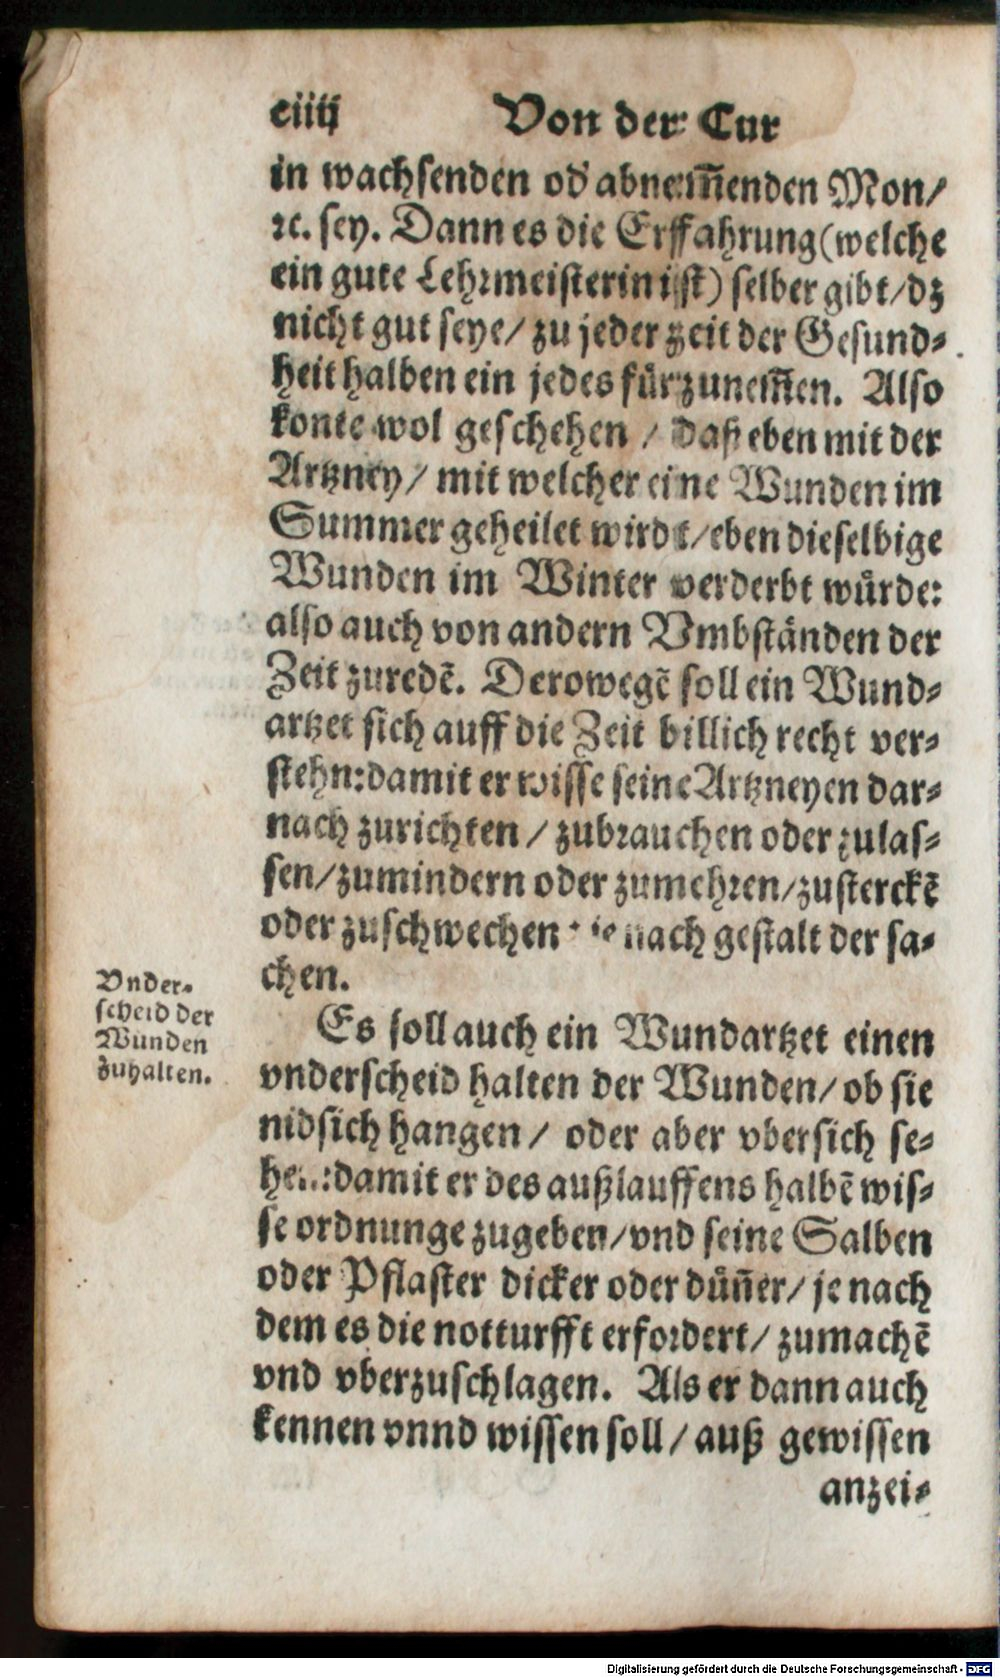 ciiij Von der Cur
in wachsenden od' abnem̃enden Mon/
ꝛc. sey. Dann es die Erffahrung (welche
ein gute Lehrmeisterin ist) selber gibt/dz
nicht gut seye/ zu jeder zeit der Gesund-
heit halben ein jedes fürzunem̃en. Also
konte wol geschehen / daß eben mit der
Artzney/ mit welcher eine Wunden im
Summer geheilet wirdt/eben dieselbige
Wunden im Winter verderbt würde:
also auch von andern Vmbständen der
Zeit zuredẽ. Derowegẽ soll ein Wund-
artzet sich auff die Zeit billich recht ver-
stehn: damit er wisse seine Artzneyen dar-
nach zurichten / zubrauchen oder zulas-
sen/zumindern oder zumehren/zusterckẽ
oder zuschwechen je nach gestalt der sa-
chen.
Vnder-
scheid der
Wunden
zuhalten.
Es soll auch ein Wundartzet einen
vnderscheid halten der Wunden/ ob sie
nidsich hangen / oder aber vbersich se-
hen: damit er des außlauffens halbẽ wis-
se ordnunge zugeben/vnd seine Salben
oder Pflaster dicker oder düñer/ je nach
dem es die notturfft erfordert/ zumachẽ
vnd vberzuschlagen. Als er dann auch
kennen vnnd wissen soll / auß gewissen
anzei-
Digitalisierung gefördert durch die Deutsche Forschungsgemeinschaft - DFG